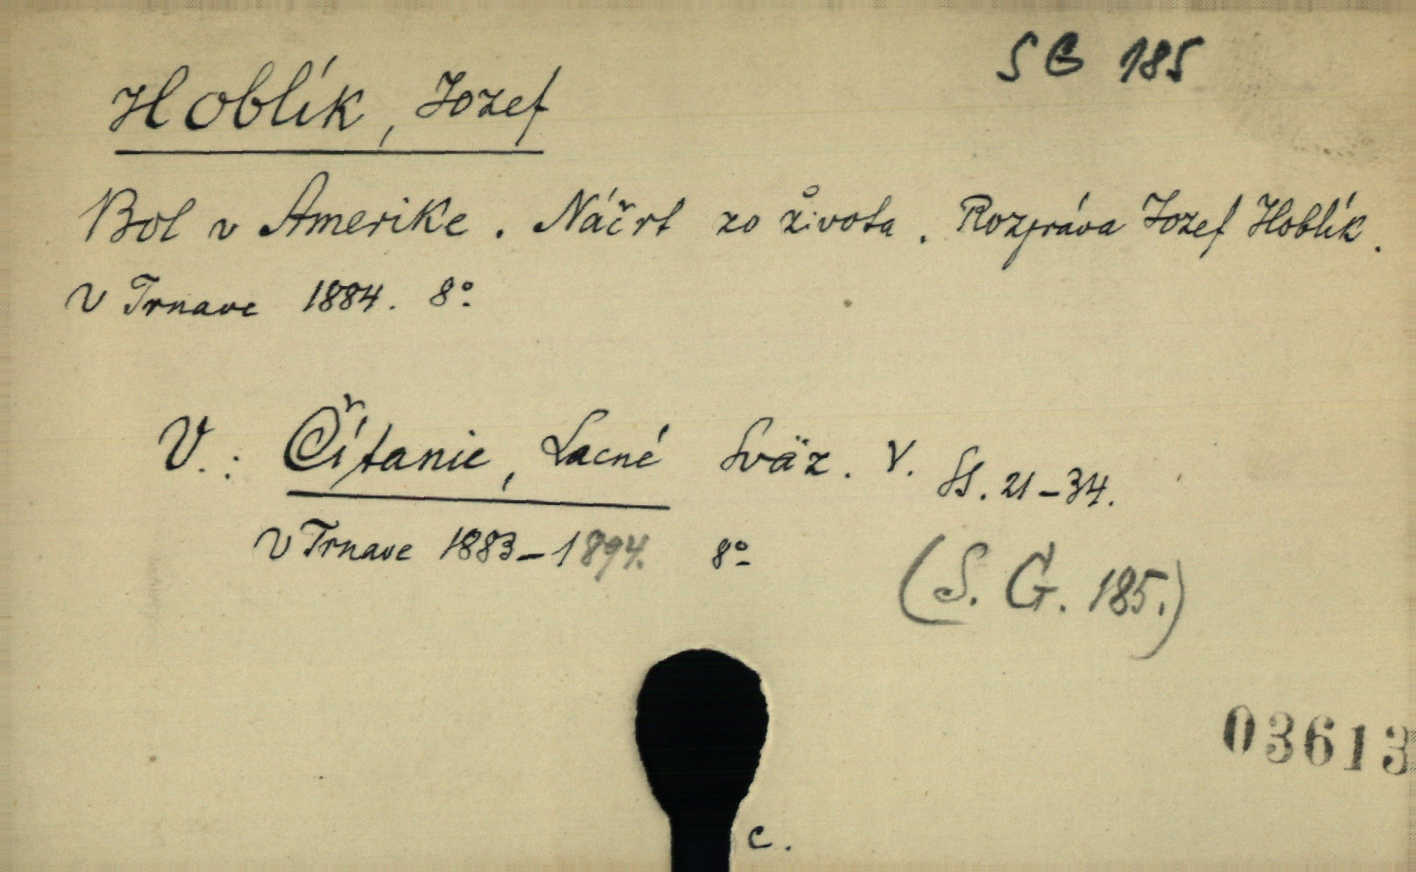 S G 185
Hoblík, Jozef
Bol v Amerike. Náčrt zo života. Rozpráva Jozef Hoblík.
V Trnave 1884. 8°
V.: Čítanie, Lacné Sväz. V. SS. 21-34.
V Trnave 1883-1894. 8°
(S. G. 185.)
03613
c.